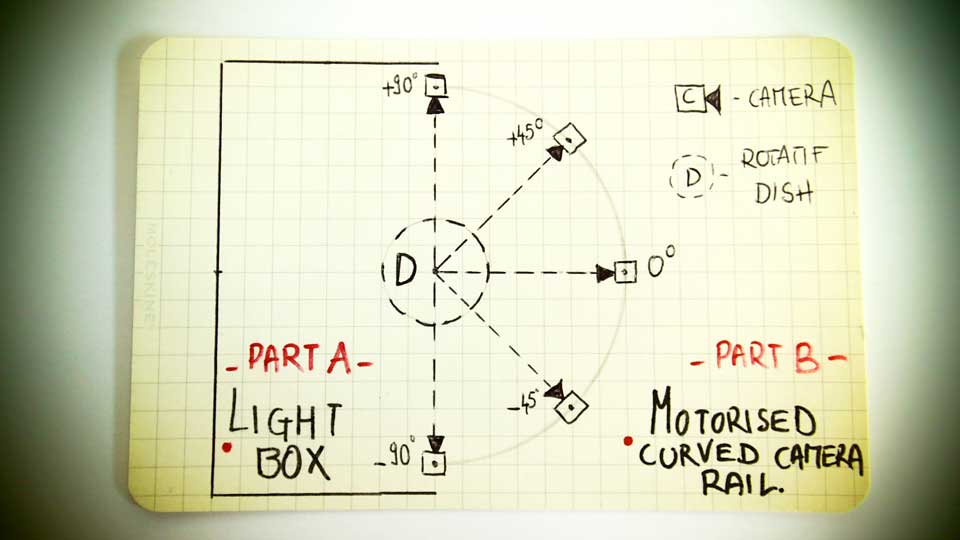 +90°
+45°
C - CAMERA
D - ROTATIF
DISH
D
0°
-45°
-90°
MOLESKINE
- PART A -
LIGHT
BOX
- PART B -
MOTORISED
CURVED CAMERA
RAIL.